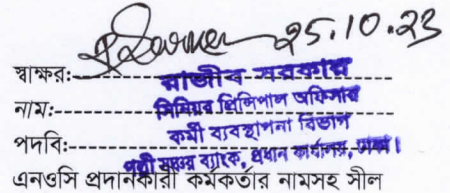 25.10.23
স্বাক্ষর:
রাজীব সরকার
নাম:
সিনিয়র প্রিন্সিপাল অফিসার
কর্মী ব্যবস্থাপনা বিভাগ
পদবি:
পল্লী সঞ্চয় ব্যাংক, প্রধান কার্যালয়, ঢাকা।
এনওসি প্রদানকারী কর্মকর্তার নামসহ সীল